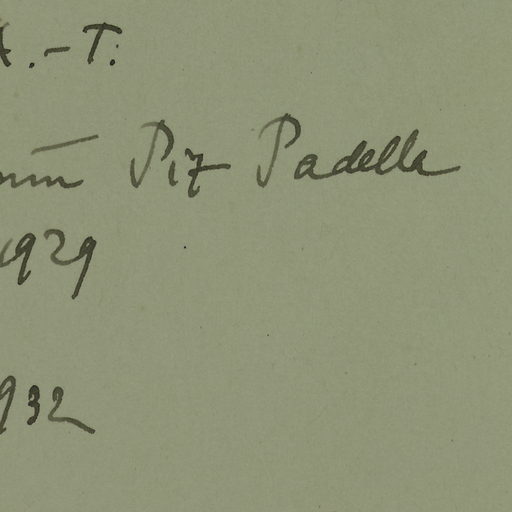 A.-T:
Piz Padella
1929
932